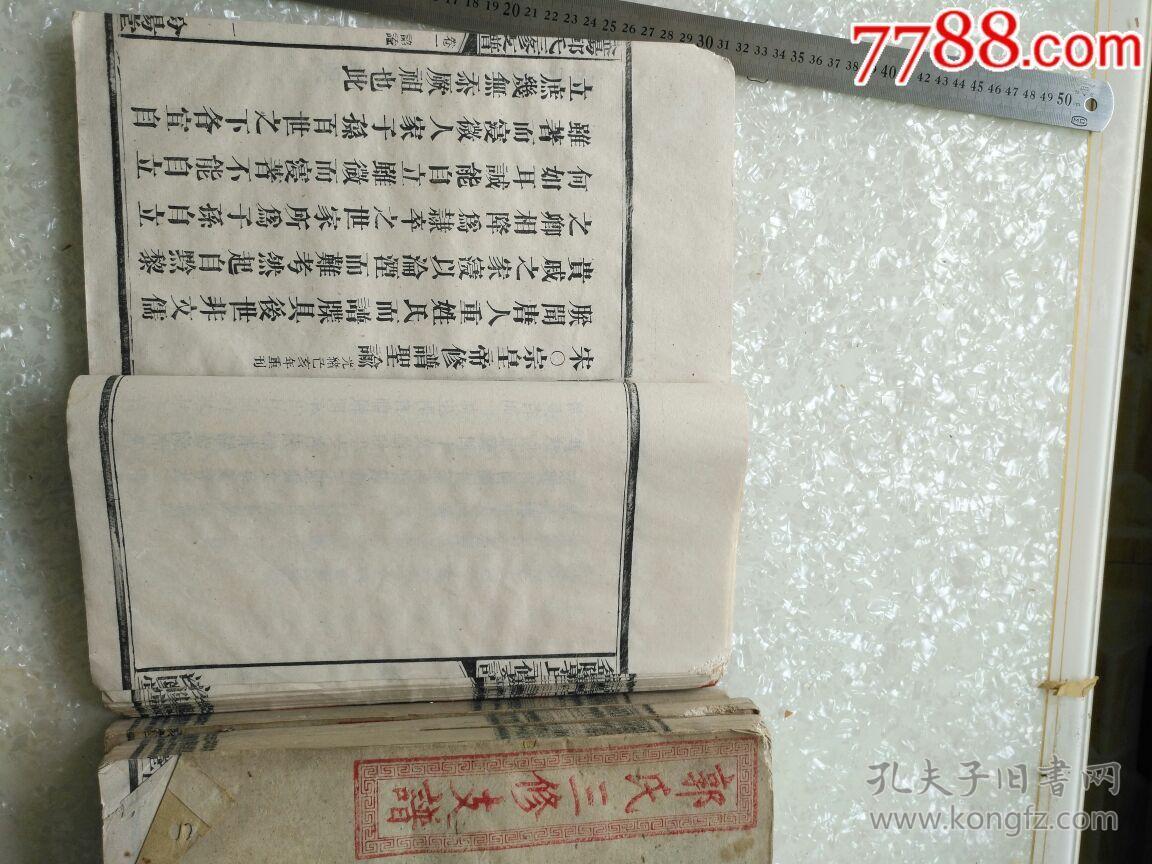 宋○宗皇帝修譜聖諭 光緒己亥年重刊
朕聞唐人重姓氏而譜牒具後世非文儒
貴戚之家寖以淪湮而難考然起自黔黎
之卿相降爲隸卒之世家所爲子孫自立
何如耳誠能自立雖微而寖著不能自立
雖著而寖微人家子孫百世之下各宜自
立庶幾無忝厥祖也此
郭氏三修支譜
卷一
一
郭氏三修支譜
17 18 19 20 21 22 23 24 25 26 27 28 29 30 31 32 33 34 35 36 37 38 39 40 41 42 43 44 45 46 47 48 49 50
7788.com
孔夫子旧书网
www.kongfz.com